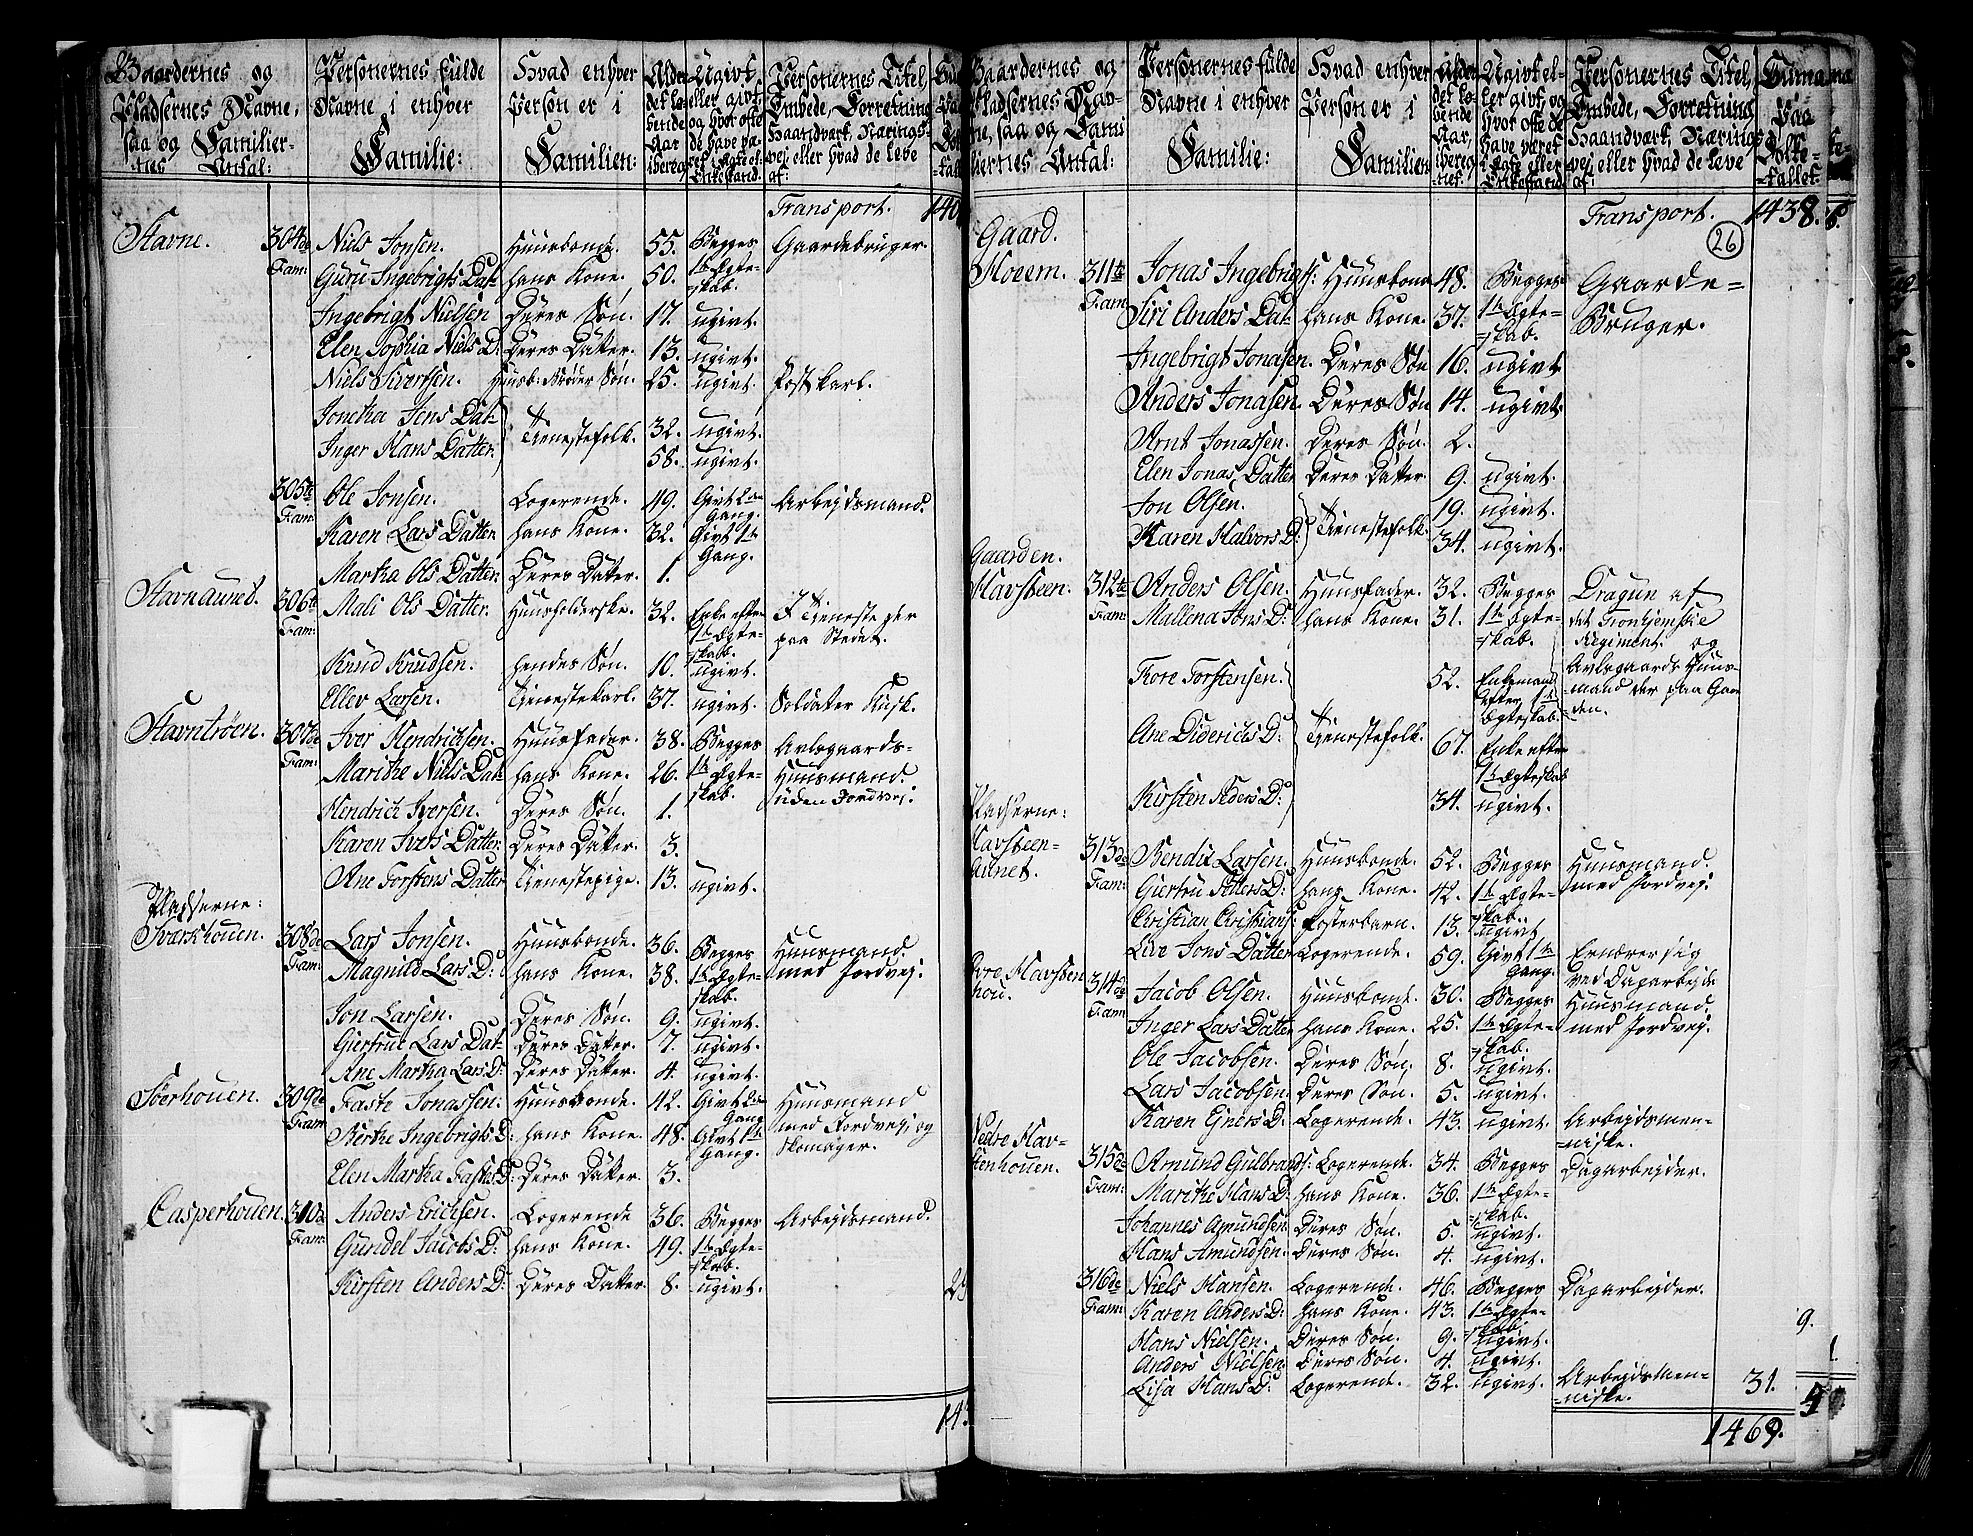 Gaardernes og
Pladsernes Navne,
saa og Familier-
nes Antal:
Personernes fulde
Navne i enhver
Familie:
Hvad enhver
Person er i
Familien:
Alder
det lø-
bende
Aar
iberegnet
Ugivt,
eller givt,
og hvor ofte
de have væ-
ret i Ægte el.
Enkestand.
Personernes Titel,
Embede, Forretning
Haandverk, Nærings-
vej eller hvad de leve
af:
Transport.
Stavne.
304de Fam: Niels Jonsen. Huusbonde. 55. Begges 1te Ægte-skab. Gaardebruger.
Guru Ingebrigts Dat- hans Kone. 50.
Ingebrigt Nielsen Deres Søn. 17. ugivt.
Elen Sophia Niels D: Deres Datter. 13. ugivt.
Niels Sivertsen. Huusb: Broder Søn. 25. ugivt. Postkarl.
Jonetha Jens Dat- Tienestefolk. 32. ugivt.
Inger Hans Datter. 58. ugivt.
305te Fam: Ole Jonsen. Logerende. 49. Givt 2den Gang. Arbejdsmand.
Karen Lars Datter hans Kone. 32. Givt 1te Gang.
Martha Ols Datter. Deres Datter. 1.
Stavnaunet.
306te Fam: Mali Ols Datter. Huusholderske. 32. Enke efter 1te Ægte-skab. I Tieneste her paa Stedet.
Knud Knudsen. hendes Søn. 10. ugivt.
Ellev Larsen. Tienestekarl. 37. ugivt. Soldater Kusk.
Stavntrøen.
307de Fam: Iver Hendrichsen. Huusfader. 38. Begges 1te Ægte-skab. Avlsgaards-Huusmand. uden Jordvej.
Marithe Niels Dat- hans Kone. 26.
Hendrich Iversen. Deres Søn. 1.
Karen Ivers Datter. Deres Datter. 3.
Ane Torstens Datter Tienestepige. 13. ugivt.
Pladserne:
Sværkhouen.
308de Fam: Lars Jonsen. Huusbonde. 36. Begges 1te Ægte-skab. Huusmand. med Jordvej.
Magnild Lars D: hans Kone. 38.
Jon Larsen. Deres Søn. 9. ugivt.
Giertrue Lars Dat- Deres Datter. 7. ugivt.
Ane Martha Lars D: Deres Datter. 4. ugivt.
Sørhouen.
309de Fam: Faste Jonassen. Huusbonde. 42. Givt 2den Gang Huusmand med Jordvej og Skomager.
Berthe Ingebrigts D: hans Kone. 48. Givt 1te Gang.
Elen Martha Fastes D: Deres Datter 3.
Casperhouen.
310de Fam: Anders Erichsen. Logerende 36. Begges 1te Ægte-skab. Arbejdsmand.
Gundel Jacobs D: hans Kone. 49.
Kirsten Anders D: Deres Datter. 8. ugivt.
Gaardernes og
Pladsernes Nav-
ne, saa og Fami
liernes Antal:
Personernes fulde
Navne i enhver
Familie:
Hvad enhver
Person er i
Familien
Alder
det lø-
bende
Aar
ibereg
net.
Ugivt el-
ler givt, og
hvor ofte de
have været
i Ægte eller
Enkestand
Personernes Titel,
Embede, Forretning
Haandverk, Nærings
vej, eller hvad de leve
af:
Suma
Paa
Folke-
tallet.
Transport. 1438.
26
Gaard.
Moeem.
311te Fam: Jonas Ingebrigts: Huusbond 48. Begges 1te Ægte-skab. Gaarde-Bruger.
Siri Anders Dat- hans Kone. 37.
Ingebrigt Jonasen. Deres Søn 16. ugivt
Anders Jonasen. Deres Søn 14. ugivt
Arnt Jonassen. Deres Søn. 2.
Elen Jonas Datter Deres Datter 9. ugivt.
Jon Olsen. Tienestefolk. 19. ugivt.
Karen Halvors D: 34. ugivt.
Gaarden.
Havsteen.
312te Fam: Anders Olsen. Huusfader. 32. Begges 1te Ægte-skab. Dragun af det Tronhjemske Regiment. og Avlsgaards Huus-mand der paa Gaarden.
Mallena Jons D: hans Kone. 31.
Tore Torstensen. 52. Enkemand efter 1te Ægteskab.
Ane Diderichs D: Tienestefolk. 67. Enke efter 1te Ægteskab
Kirsten Peders D: 34. ugivt.
Pladserne:
Havsteen-
aunet.
313de Fam: Bendix Larsen. Huusbonde. 52. Begges 1te Ægte-skab. Huusmand. med Jordvej.
Giertru Petters D: hans Kone. 42.
Christian Christians: Fosterbarn. 13. ugivt
Live Jons Datter Logerende. 59. Givt 1te Gang. Ernærer sig ved Dagarbejde
Øvre Havsten
hou.
314de Fam: Jacob Olsen. Huusbonde. 30. Begges 1te Ægte-skab. Huusmand. med Jordvej.
Inger Lars Datter hans Kone. 25.
Ole Jacobsen. Deres Søn. 8. ugivt.
Lars Jacobsen. Deres Søn. 5. ugivt.
Karen Ejners D. Logerende. 43. ugivt. Arbejdsmen-niske.
Nedre Hav-
stenhouen.
315de Fam: Amund Gulbrands: Logerende. 34. Begges 1te Ægte-skab. Dagarbejder.
Marithe Hans D: hans Kone. 36.
Johannes Amundsen Deres Søn. 5. ugivt.
Hans Amundsen. Deres Søn. 4. ugivt.
316de Fam: Niels Hansen. Logerende. 46. Begges 1te Ægte-skab. Dagarbejder.
Karen Anders D: hans Kone. 43.
Hans Nielsen. Deres Søn. 9. ugivt.
Anders Nielsen Deres Søn. 4. ugivt.
Lisa Hans D: Logerende. 32. ugivt. Arbejdsmen-niske.
31.
1469.
9.
1.